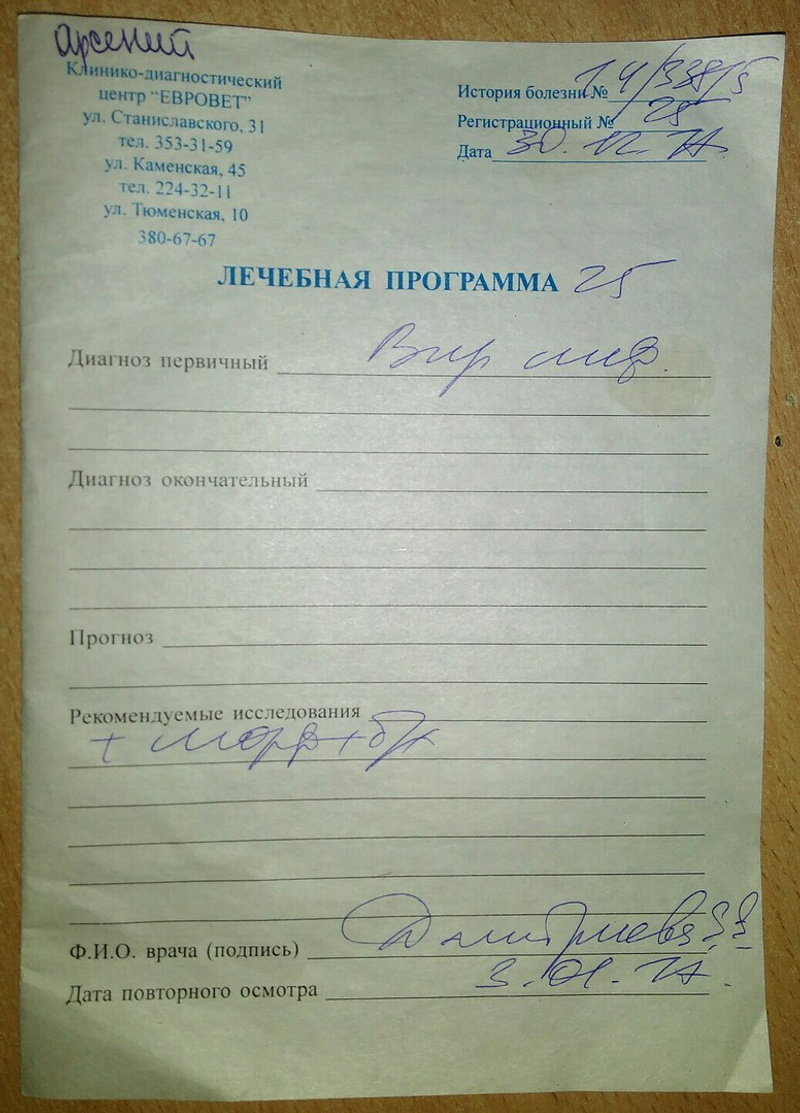 Арсений
Клинико-диагностический
центр "ЕВРОВЕТ"
ул. Станиславского, 31
тел. 353-31-59
ул. Каменская, 45
тел. 224-32-11
ул. Тюменская, 10
380-67-67
История болезни № 14/338/5
Регистрационный № 25
Дата 30. 12. 17
ЛЕЧЕБНАЯ ПРОГРАММА 25
Диагноз первичный Вир инф.
Диагноз окончательный
Прогноз
Рекомендуемые исследования
+ морф + б/х
Ф.И.О. врача (подпись) Дмитриева
Дата повторного осмотра 3. 01. 17.